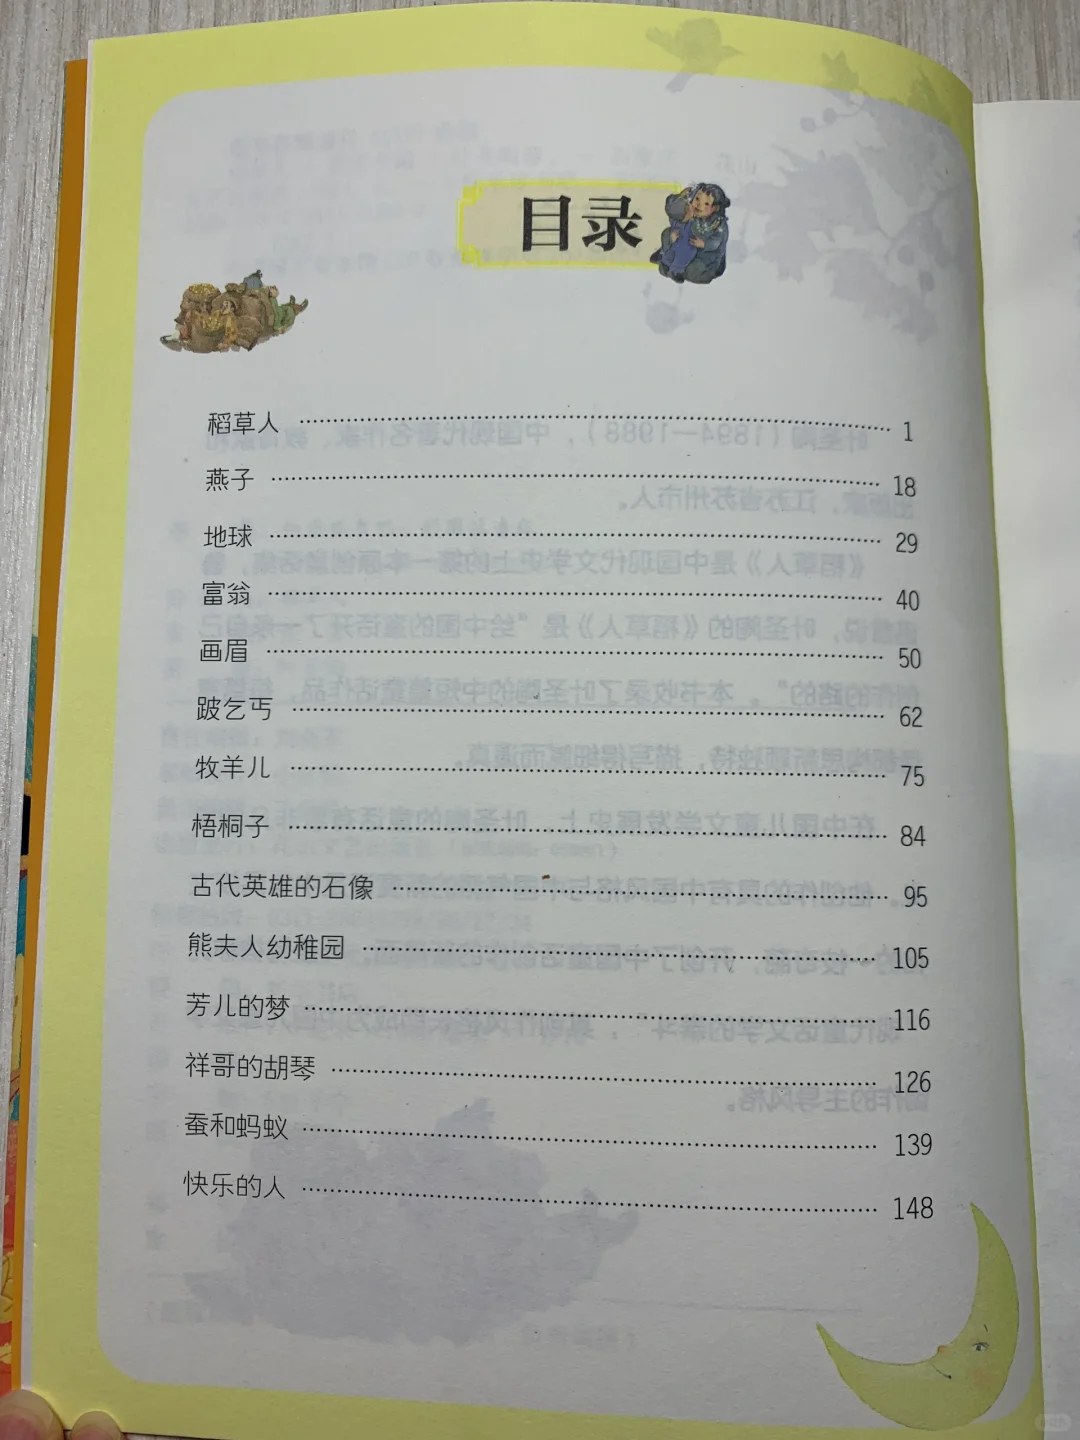 目录
稻草人 1
燕子 18
地球 29
富翁 40
画眉 50
跛乞丐 62
牧羊儿 75
梧桐子 84
古代英雄的石像 95
熊夫人幼稚园 105
芳儿的梦 116
祥哥的胡琴 126
蚕和蚂蚁 139
快乐的人 148